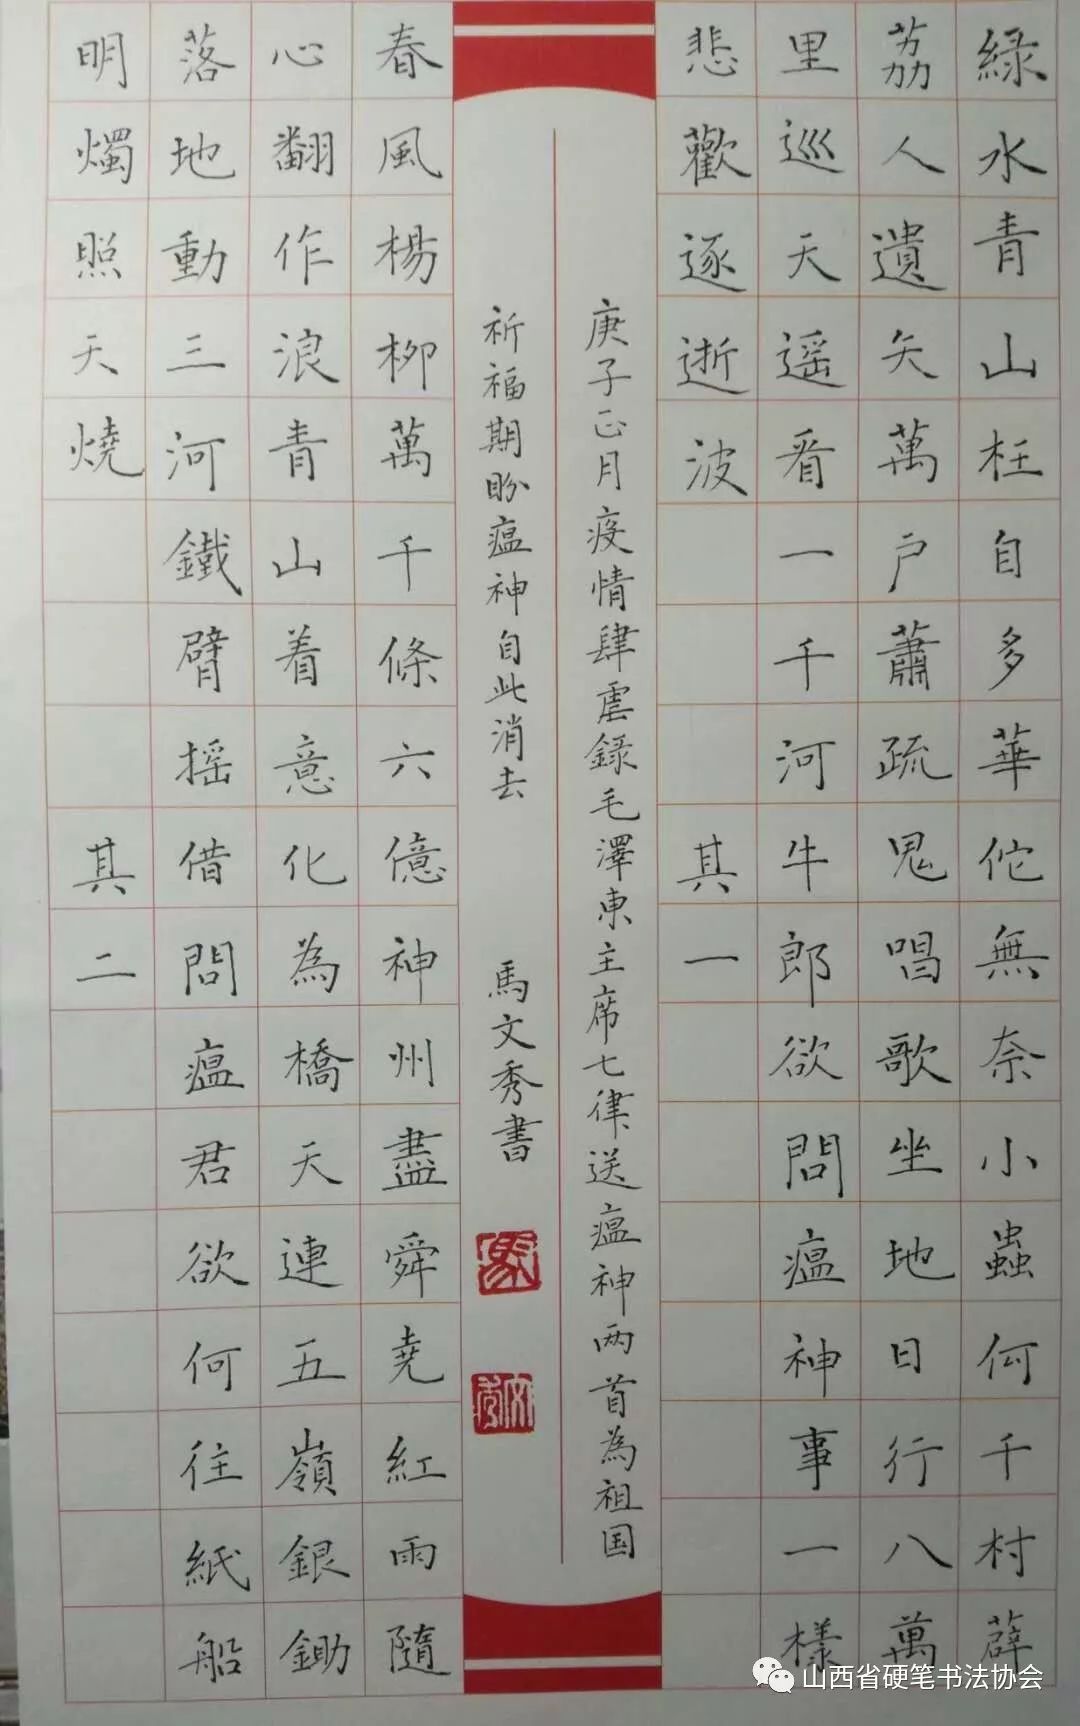 綠水青山枉自多華佗無奈小蟲何千村薜
荔人遺矢萬户蕭疏鬼唱歌坐地日行八萬
里巡天遥看一千河牛郎欲問瘟神事一樣
悲歡逐逝波 其一
庚子正月疫情肆虐錄毛澤東主席七律送瘟神两首為祖国
祈福期盼瘟神自此消去 馬文秀書
春風楊柳萬千條六億神州盡舜堯紅雨隨
心翻作浪青山着意化為橋天連五嶺銀鋤
落地動三河鐵臂摇借問瘟君欲何往紙船
明燭照天燒 其二
山西省硬笔书法协会